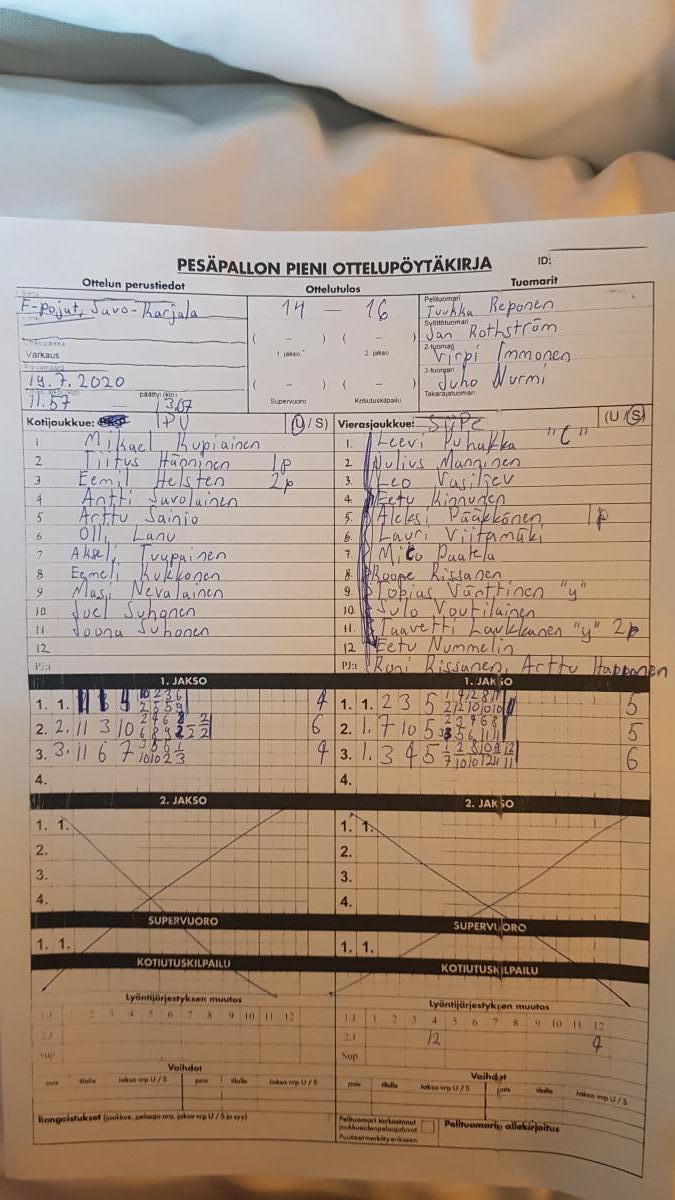 PESÄPALLON PIENI OTTELUPÖYTÄKIRJA ID:
Ottelun perustiedot Ottelutulos Tuomarit
F-pojat, Savo-Karjala 14 - 16
Pelituomari
Tuukka Reponen
Syöttötuomari
Jan Rothström
2-tuomari
Virpi Immonen
3-tuomari
Juho Nurmi
Takarajatuomari
( - ) ( - )
1. jakso 2. jakso
( - ) ( - )
Supervuoro Kotiutuskilpailu
Varkaus
19.7.2020
11.57 päättyi (klo) 13.07
Kotijoukkue: IPV (U/S)
1 Mikael Kupiainen
2 Tiitus Hänninen 1p
3 Eemil Helsten 2p
4 Antti Savolainen
5 Arttu Sainio
6 Olli Lanu
7 Akseli Tuupainen
8 Eemeli Kukkonen
9 Masi Nevalainen
10 Joel Suhonen
11 Joona Suhonen
12.
PJ:t
Vierasjoukkue: SiiPe (U/S)
1. Leevi Puhakka "C"
2. Julius Manninen
3. Leo Vasiljev
4. Eetu Kinnunen
5. Aleksi Pääkkönen 1p
6. Lauri Viitamäki
7. Mico Paatela
8. Roope Rissanen
9. Tobias Värttinen "y"
10. Sulo Voutilainen
11. Taavetti Laukkanen "y" 2p
12. Eetu Nummelin
PJ:t Roni Rissanen, Arttu Happonen
1. JAKSO 1. JAKSO
1. 1. 4
2. 2. 11 3 10 6
3. 3. 11 6 7 4
4.
1. 1. 2 3 5 5
2. 1. 7 10 5 5
3. 1. 3 4 5 6
4.
2. JAKSO 2. JAKSO
1. 1. 1. 1.
2. 2.
3. 3.
4. 4.
SUPERVUORO SUPERVUORO
1. 1. 1. 1.
KOTIUTUSKILPAILU KOTIUTUSKILPAILU
Lyöntijärjestyksen muutos Lyöntijärjestyksen muutos
1.J 2 3 4 5 6 7 8 9 10 11 12
2.J
Sup
1.J 1 2 3 4 5 6 7 8 9 10 11 12
2.J 12 4
Sup
Vaihdot Vaihdot
pois tilalle Jakso vrp U / S pois tilalle Jakso vrp U / S
pois tilalle Jakso vrp U / S pois tilalle Jakso vrp U / S
Rangaistukset (joukkue, pelaaja nro, jakso vrp U / S ja syy)
Pelituomari tarkastanut
joukkueiden pelaajaluvat.
Puutteet merkitty erikseen
Pelituomarin allekirjoitus